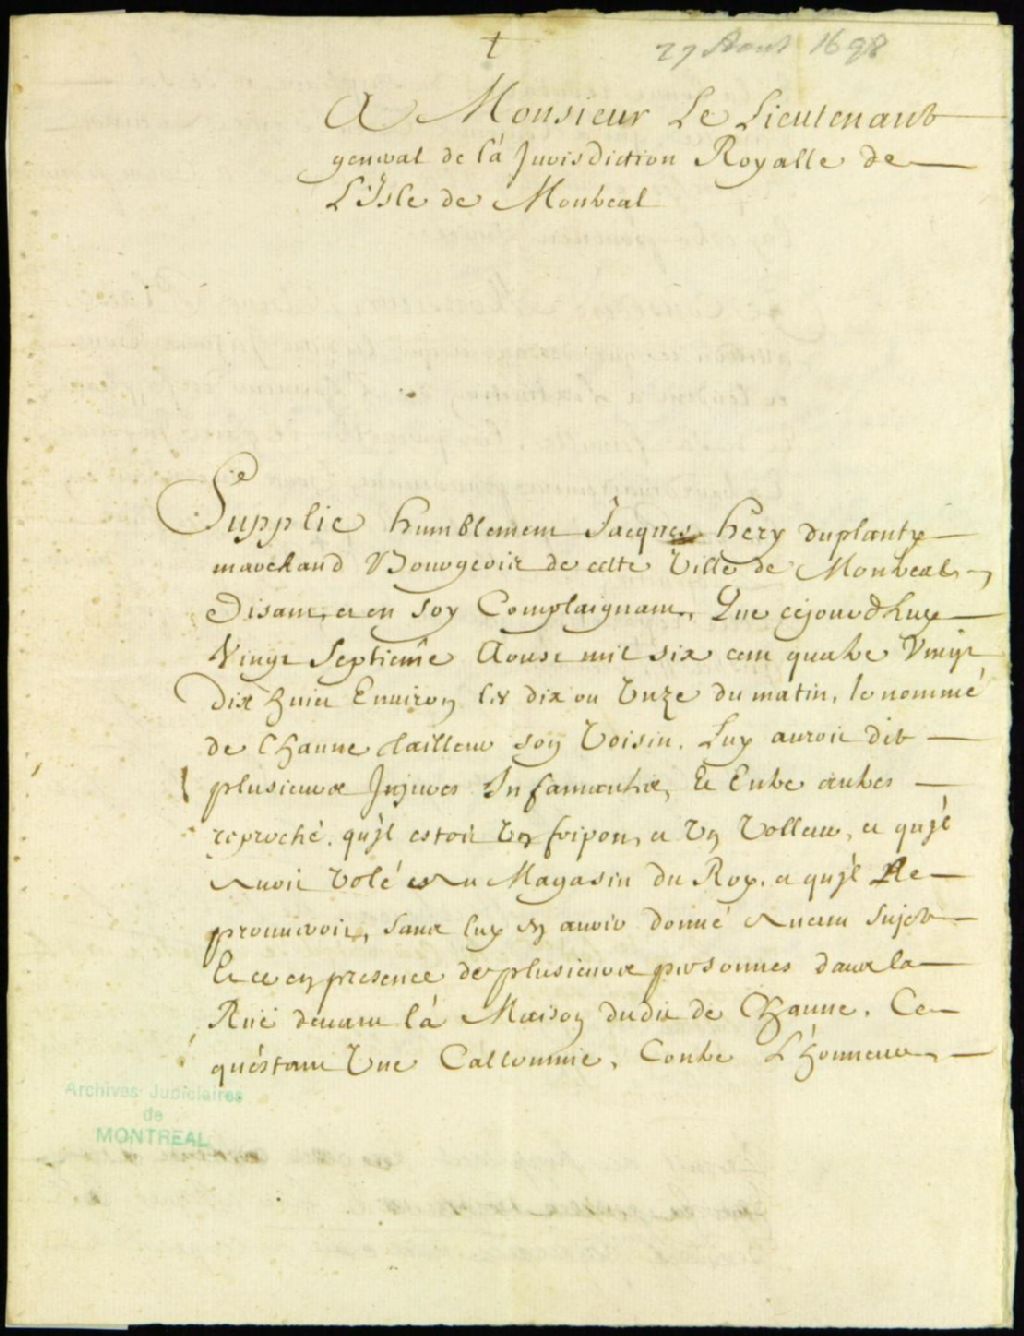 27 Aout 1698
A Monsieur Le Lieutenant
general de la Jurisdiction Royalle de
L'Isle de Montreal
Supplie humblement Jacques hery duplanty
marchand Bourgeois de cette Ville de Montreal,
Disant, et en soy Complaignant, Que cejourdhuy
Vingt Septieme Aoust mil six cent quatre Vingt
Dix huict Environ les dix ou Unze du matin, le nommé
de Chaune tailleur son Voisin, Luy auroit dit
plusieurs Injures Infamantes, Et Entre autres
reproché, qu'jl estoit Un fripon, et Un Volleur, et qu'jl
avoit Volé au Magasin du Roy, et qu'jl Le
prouveroit, sans luy en avoir donné aucun sujet
Et ce en presence de plusieurs personnes dans la
Rue devant la Maison dudit de Chaune, Ce
qu'estant Une Callomnie, Contre L'honneur,
Archives Judiciaires
de
MONTREAL